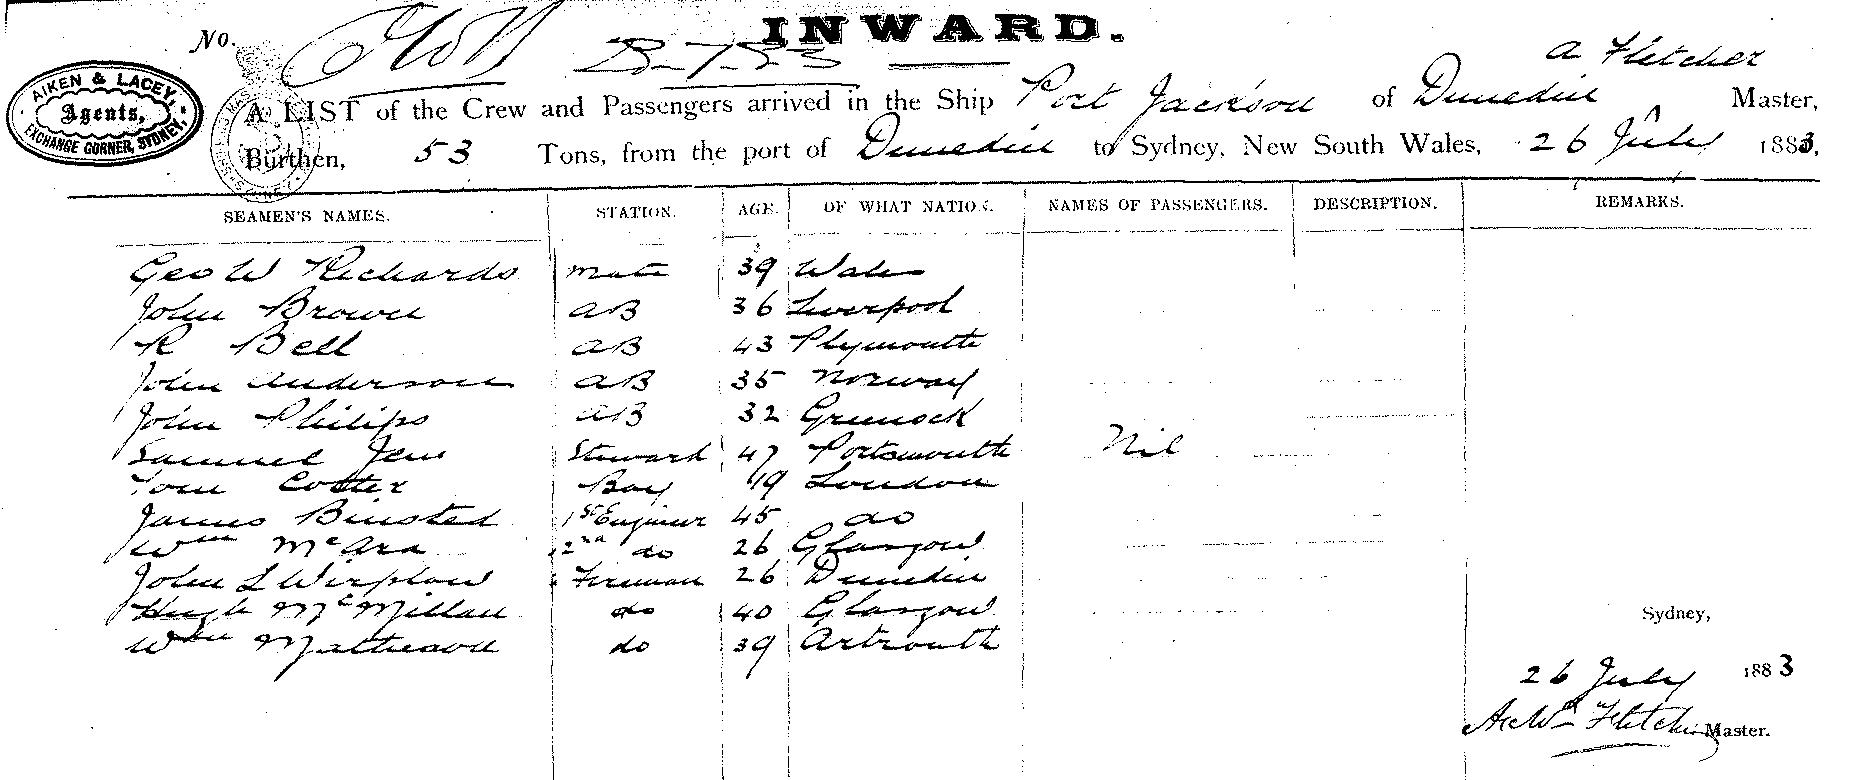 INWARD.
No.
AIKEN & LACEY,
Agents,
EXCHANGE CORNER, SYDNEY.
A Fletcher
A LIST of the Crew and Passengers arrived in the Ship Port Jackson of Dunedin Master,
Burthen, 53 Tons, from the port of Dunedin to Sydney, New South Wales, 26 July 1883,
SEAMEN'S NAMES. STATION. AGE. OF WHAT NATION. NAMES OF PASSENGERS. DESCRIPTION. REMARKS.
Geo W Richards mate 39 Wales
John Brown AB 36 Liverpool
R Bell AB 43 Plymouth
John Anderson AB 35 Norway
John Philips AB 32 Greenock
Samuel Steward 47 Portsmouth Nil
Tom Coster Boy 19 London
James Binsted 1st Engineer 45 do
Wm McAra 2nd do 26 Glasgow
John L Fireman 26 Dunedin
Hugh McMillan do 40 Glasgow
Wm Matheson do 39
Sydney,
26 July 1883
Fletcher Master.